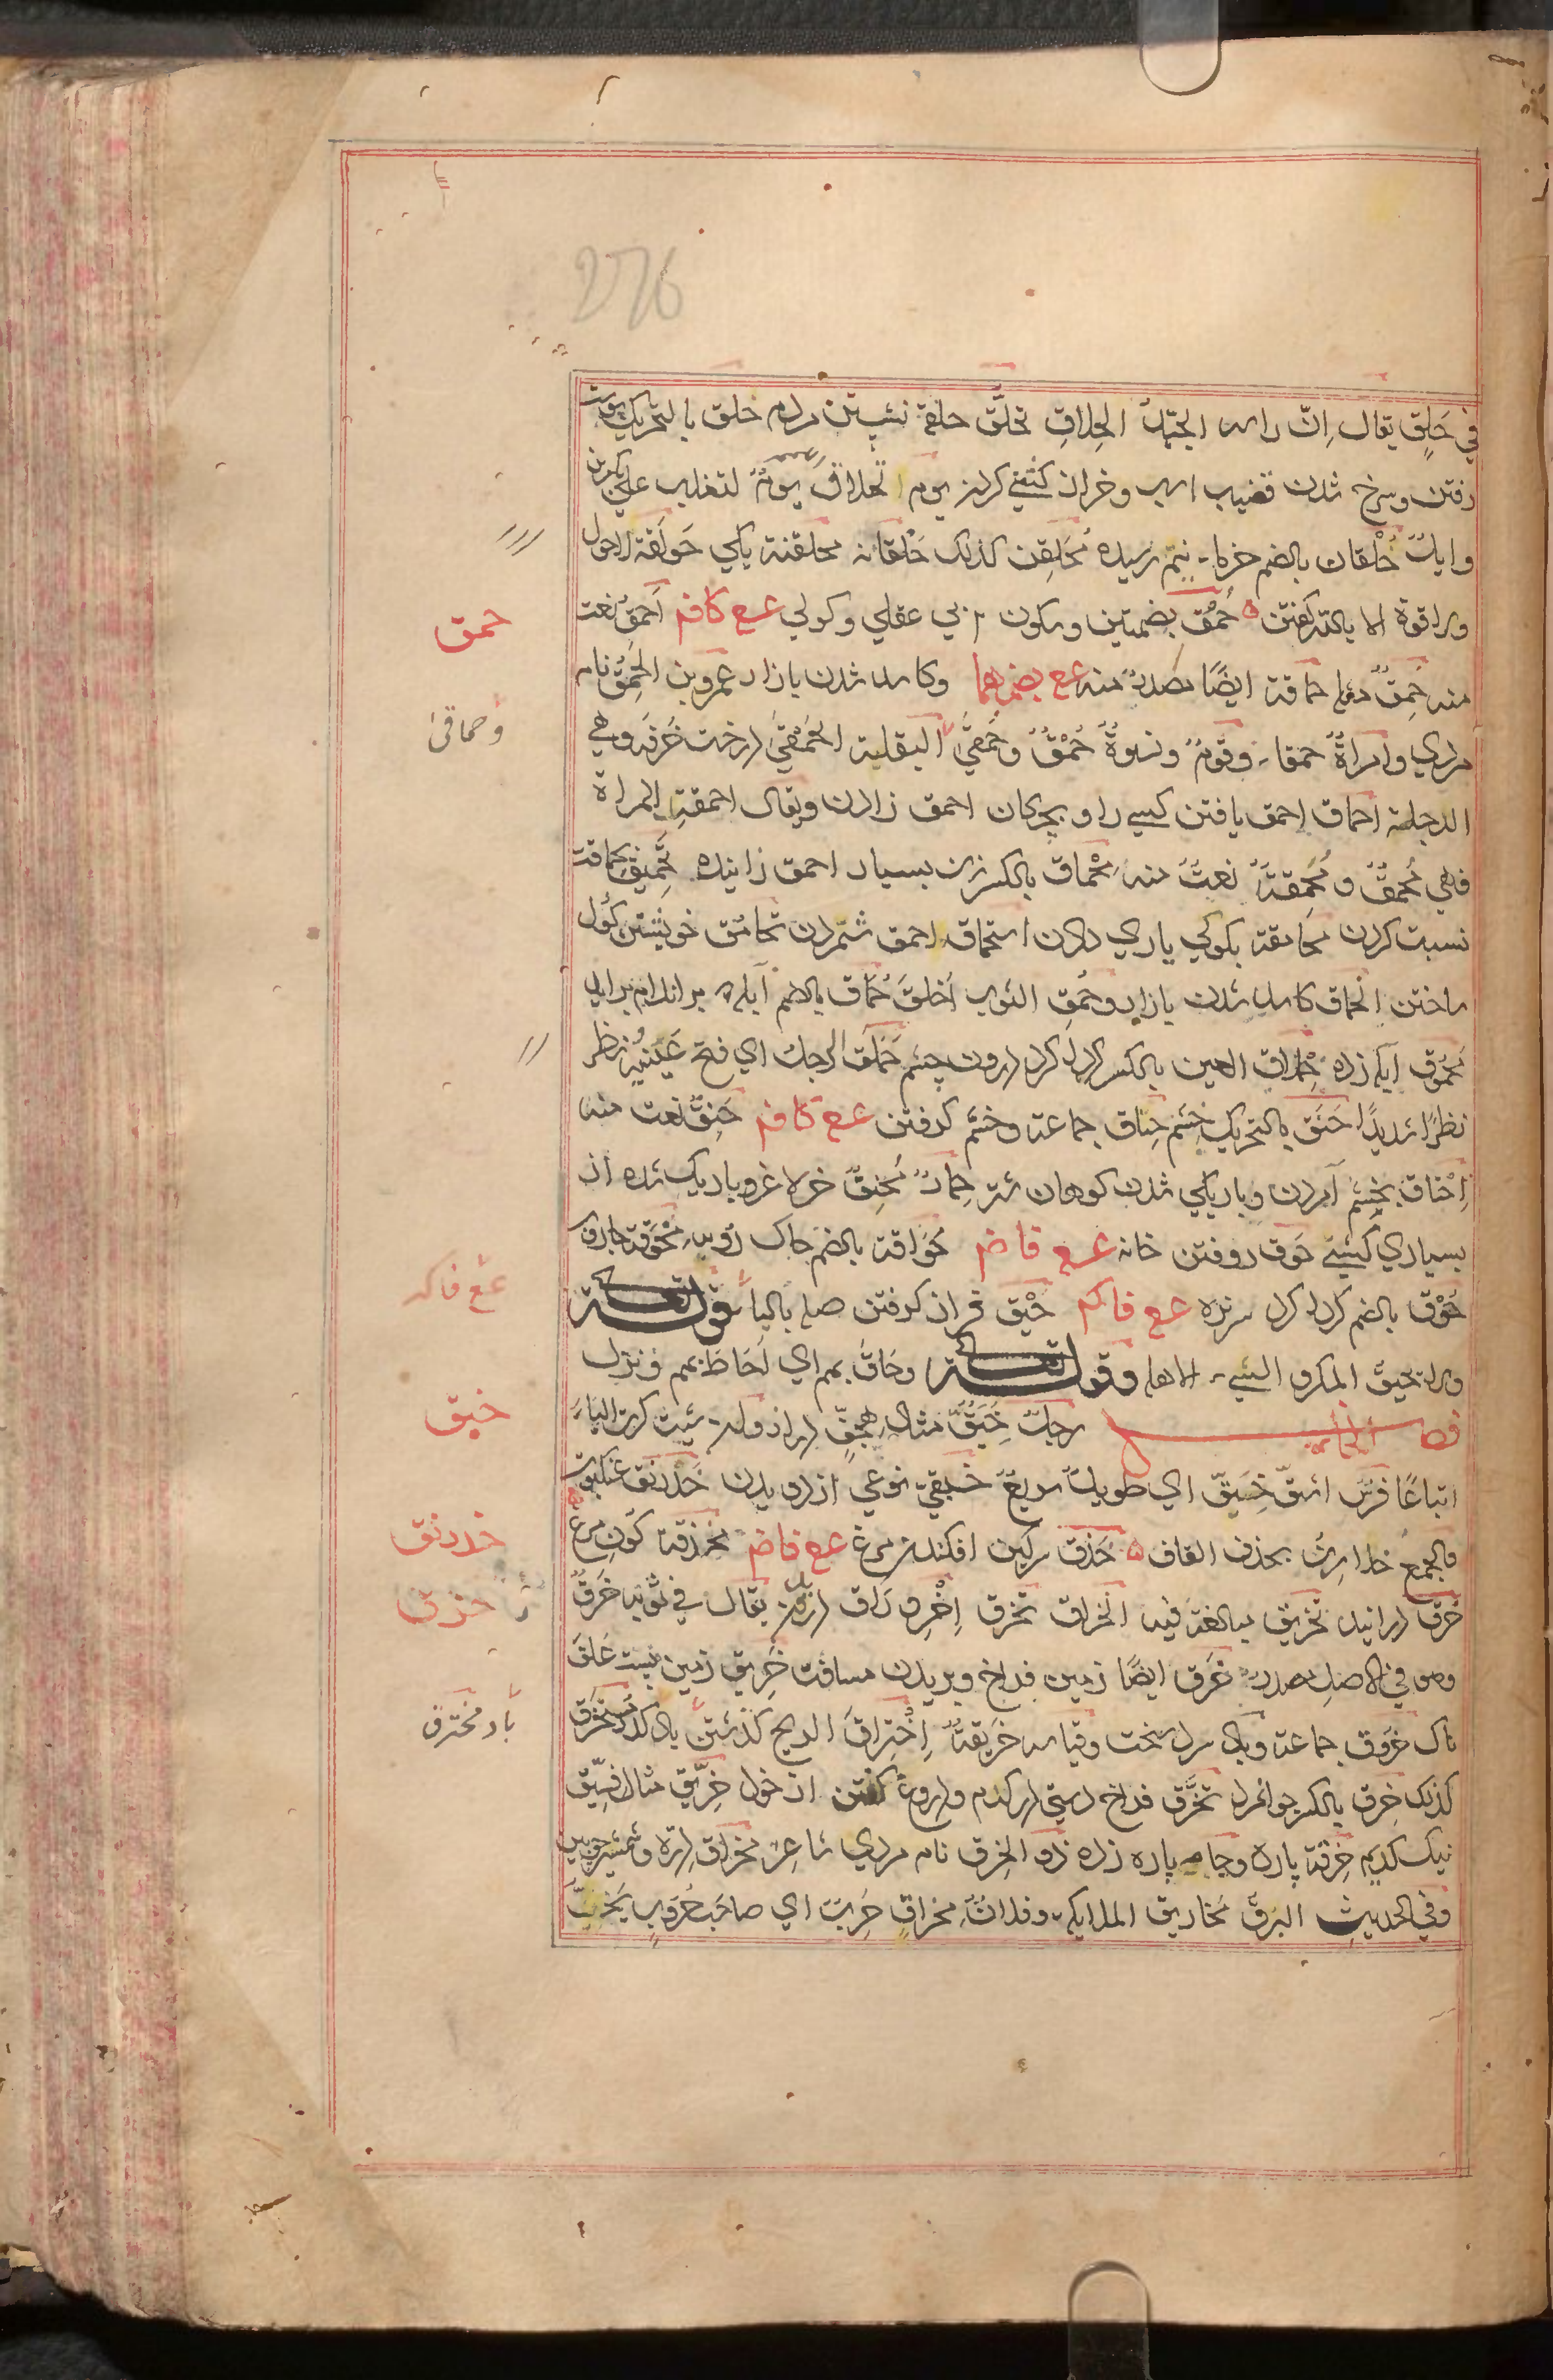 276
في حَلِقٍ يقال اِنّ راس الجَبَل الحِلاقِ تحلّق حلقة نشستن مردم حلق بالتحريك پوست
رفتن و سرخ شدن قضيب اسب و خران كُشني كردن يوم تحلاقَ يومٌ لتغلب علي بكر بن
وايلٌ حُلْقان بالضم خرما نيم رسيده مُحَلقِن كذلك حُلْقانه محلقنة يكي حَولَقة لاحول
ولا قوة الا بالله گفتن حُمُق بضمتين وسكون م بي عقلي و كولي عـع كافم اَحمَق نعت
منه حَمِقٌ مثله حماقة ايضًا مصدرٌ منه عع بضمهما وكاسد شدن بازار عمروبن الحَمِق نام
مردي وامراةٌ حمقاء وقومٌ ونسوةٌ حُمْقٌ وحَمقيٰ البقلة الحَمْقيٰ درخت خُرفَه وهي
الرجلة احماق احمق يافتن كسي را و بچگان احمق زادن ويقال احمقتِ المراة
فهي مُحمِقٌ و مُحمِقةٌ نعتٌ منه مِحْماق بالكسر زن بسيار احمق زاينده تَحميق بحماقت
نسبت كردن محامقة بكولي ياري دادن استحماق احمق شمردن تحامُق خويشتن كول
ساختن انحماق كاسد شدن بازار وحَمُق الثوب اَخلَقَ حُماق بالضم آبله بر اندام برايد
مَحمُوق آبله زده حِملاق العين بالكسر گردا گرد درون چشم حَملَق الرجلُ اي فتح عَينَيهِ ونظر
نظرًا شديدًا حَنَق بالتحريك خشم حِناق جماعة وخشم گرفتن عـع كافم حَنِقٌ نعت منه
اِحْناق بخشم آمردن وباريكي شدن كوهان شتر حِمارٌ مُحنِقٌ خر لاغر و باريك شده از
بسياري كُشني حَوق روفتن خانه عـع فاضم حُوَاقة بالضم خاك رُوبه مِحْوَقة جاروب
حُوْق بالضم گردا گرد سرنره عـع فاكم حَيْق فراز گرفتن صله بالباءِ قوله تعالى
ولا يحيق المكر السيءُ الا باهله وقوله تعالى وحَاقَ بهم اي اَحَاطَ بهم و نزل
فصل الخاء رجلٌ خِبَقٌّ مثال هِجَفٍّ دراز وله شيت كسرت الباءَ
اتباعًا فرسٌ اشقّ خِبِقّ اي طويلٌ سريعٌ خبقي نوعي از دويدن خَدَرنَق عنكبوت
والجمع خدارِنُ بحذف القاف خَذق سرگين افگندن مرغ عـع فاضم مخذقة كون مرغ
خَرق درانيدن تخريق مبالغة فيه انخراق تخرق اِخْرِوراق دريدن يقال في ثوبه خَرقٌ
وهو في الاصل مصدرٌ خَرق ايضًا زمين فراخ وبريدن مسافت خَريق زمين پست علف
ناك خُروق جماعة وباد سرد سخت وقياسه خَريقةٌ اِخْتِراق الريح گذشتن باد گذر مُنخَرِق
كذلك خِرق بالكسر جوانمرد تَخَرُّق فراخ دستي در كرم و دروغ گفتن از خود خِرِّيق مثال فِسِّيق
نيك كريم خِرقة پاره وجامه پاره زده ذو الخِرق نام مردي شاعرٍ مخراق دِرّه و شمشير چوبين
وفي الحديث البَرقُ مَخاريق الملايكة وفلانٌ مِخراق حَرب اي صاحب حُروبٍ يَخِفُّ
حمق
وحماقىٰ
عع فاكه
خبق
خدرنق
خذق
باد مخترق